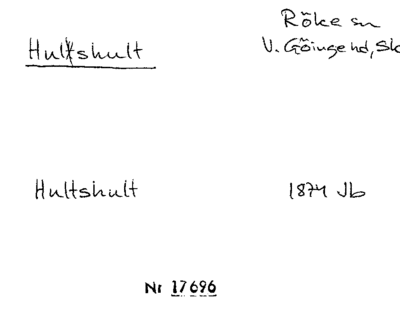 Hultshult
Röke sn
V. Göingehd, Sk
Hultshult
1874 Jb
Nr 17696